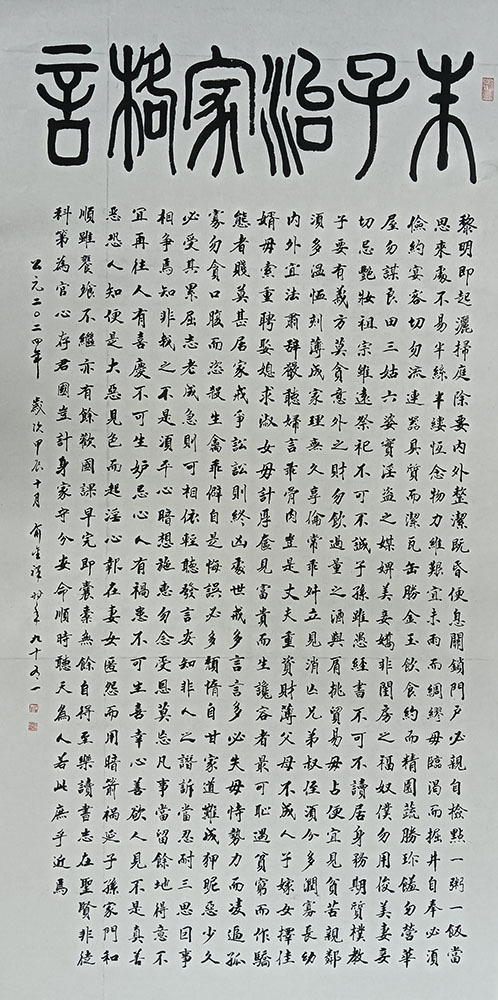 朱子治家格言
黎明即起灑掃庭除要內外整潔既昏便息關鎖門戶必親自檢點一粥一飯當
思來處不易半絲半縷恒念物力維艱宜未雨而綢繆毋臨渴而掘井自奉必須
儉約宴客切勿流連器具質而潔瓦缶勝金玉飲食約而精園蔬勝珍饈勿營華
屋勿謀良田三姑六婆實淫盜之媒婢美妾嬌非閨房之福奴僕勿用俊美妻妾
切忌艷妝祖宗雖遠祭祀不可不誠子孫雖愚經書不可不讀居身務期質樸教
子要有義方莫貪意外之財勿飲過量之酒與肩挑貿易毋占便宜見貧苦親鄰
須多溫恤刻薄成家理無久享倫常乖舛立見消亡兄弟叔侄須分多潤寡長幼
內外宜法肅辭嚴聽婦言乖骨肉豈是丈夫重資財薄父母不成人子嫁女擇佳
婿毋索重聘娶媳求淑女毋計厚奩見富貴而生讒容者最可恥遇貧窮而作驕
態者賤莫甚居家戒爭訟訟則終凶處世戒多言言多必失毋恃勢力而凌逼孤
寡勿貪口腹而恣殺生禽乖僻自是悔誤必多頹惰自甘家道難成狎昵惡少久
必受其累屈志老成急則可相依輕聽發言安知非人之譖訴當忍耐三思因事
相爭焉知非我之不是須平心暗想施惠勿念受恩莫忘凡事當留餘地得意不
宜再往人有喜慶不可生妒忌心人有禍患不可生喜幸心善欲人見不是真善
惡恐人知便是大惡見色而起淫心報在妻女匿怨而用暗箭禍延子孫家門和
順雖饔飧不繼亦有餘歡國課早完即囊橐無餘自得至樂讀書志在聖賢非徒
科第為官心存君國豈計身家守分安命順時聽天為人若此庶乎近焉
公元二〇二四年歲次甲辰十月俞 九十又一